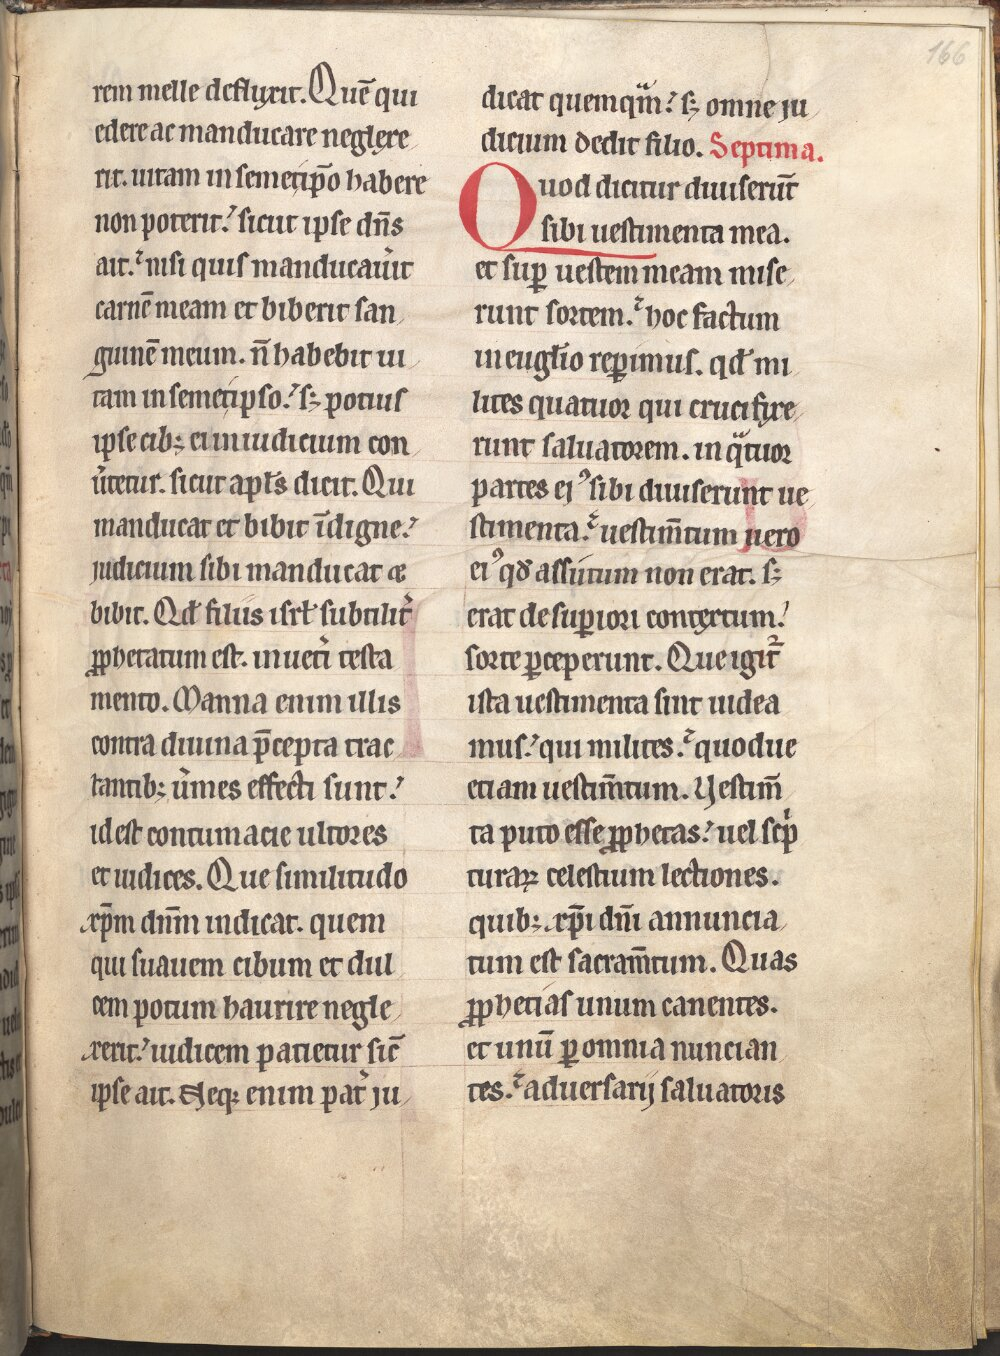 166
rem melle defluxit. Quē qui
edere ac manducare neglexe
rit. uitam in semetip̄o habere
non poterit? sicut ipse dn̄s
ait. nisi quis manducau̓it
carnē meam et biberit san
guinē meum. n̄ habebit ui
tam in semetipso? sꝫ potius
ipse cibꝫ ei in iudicium con
u̓tetur. sicut apl̄s dicit. Qui
manducat et bibit īdigne?
judicium sibi manducat æ
bibit. Qd̄ filiis isrl̄ subtilit̓
ꝓphetatum est. in uet̓i testa
mento. Manna enim illis
contra diuina p̄cepta trac
tantibꝫ u̓mes effecti sunt?
id est contumacie ultores
et iudices. Que similitudo
xp̄m dn̄m indicat. quem
qui suauem cibum et dul
cem potum haurire negle
xerit? iudicem patietur sic̄
ipse ait. Neqꝫ enim pat̓ ju
dicat quemqͣm? sꝫ omne ju
dicium dedit filio. Septima.
Quod dicitur diuiserūt
sibi uestimenta mea.
et sup̱ uestem meam mise
runt sortem. hoc factum
in eugl̄io rep̱imus. qd̄ mi
lites quatuor qui crucifixe
runt saluatorem. in qͣtuor
partes ejꝰ sibi diuiserunt ue
stimenta. uestim̄tum uero
eiꝰ qd̓ assutum non erat. sꝫ
erat de sup̱iori contextum?
sorte ꝑceperunt. Que igit᷑
ista uestimenta sint uidea
mus? qui milites. quo due
etiam uestim̄tum. Vestim̄
ta puto esse ꝓphetas? uel sc̓p
turaꝝ celestium lectiones.
quibꝫ xp̄i dn̄i annuncia
tum est sacram̄tum. Quas
ꝓphetias unum canentes.
et unū ꝑ omnia nuncian
tes. aduersarij saluatoris